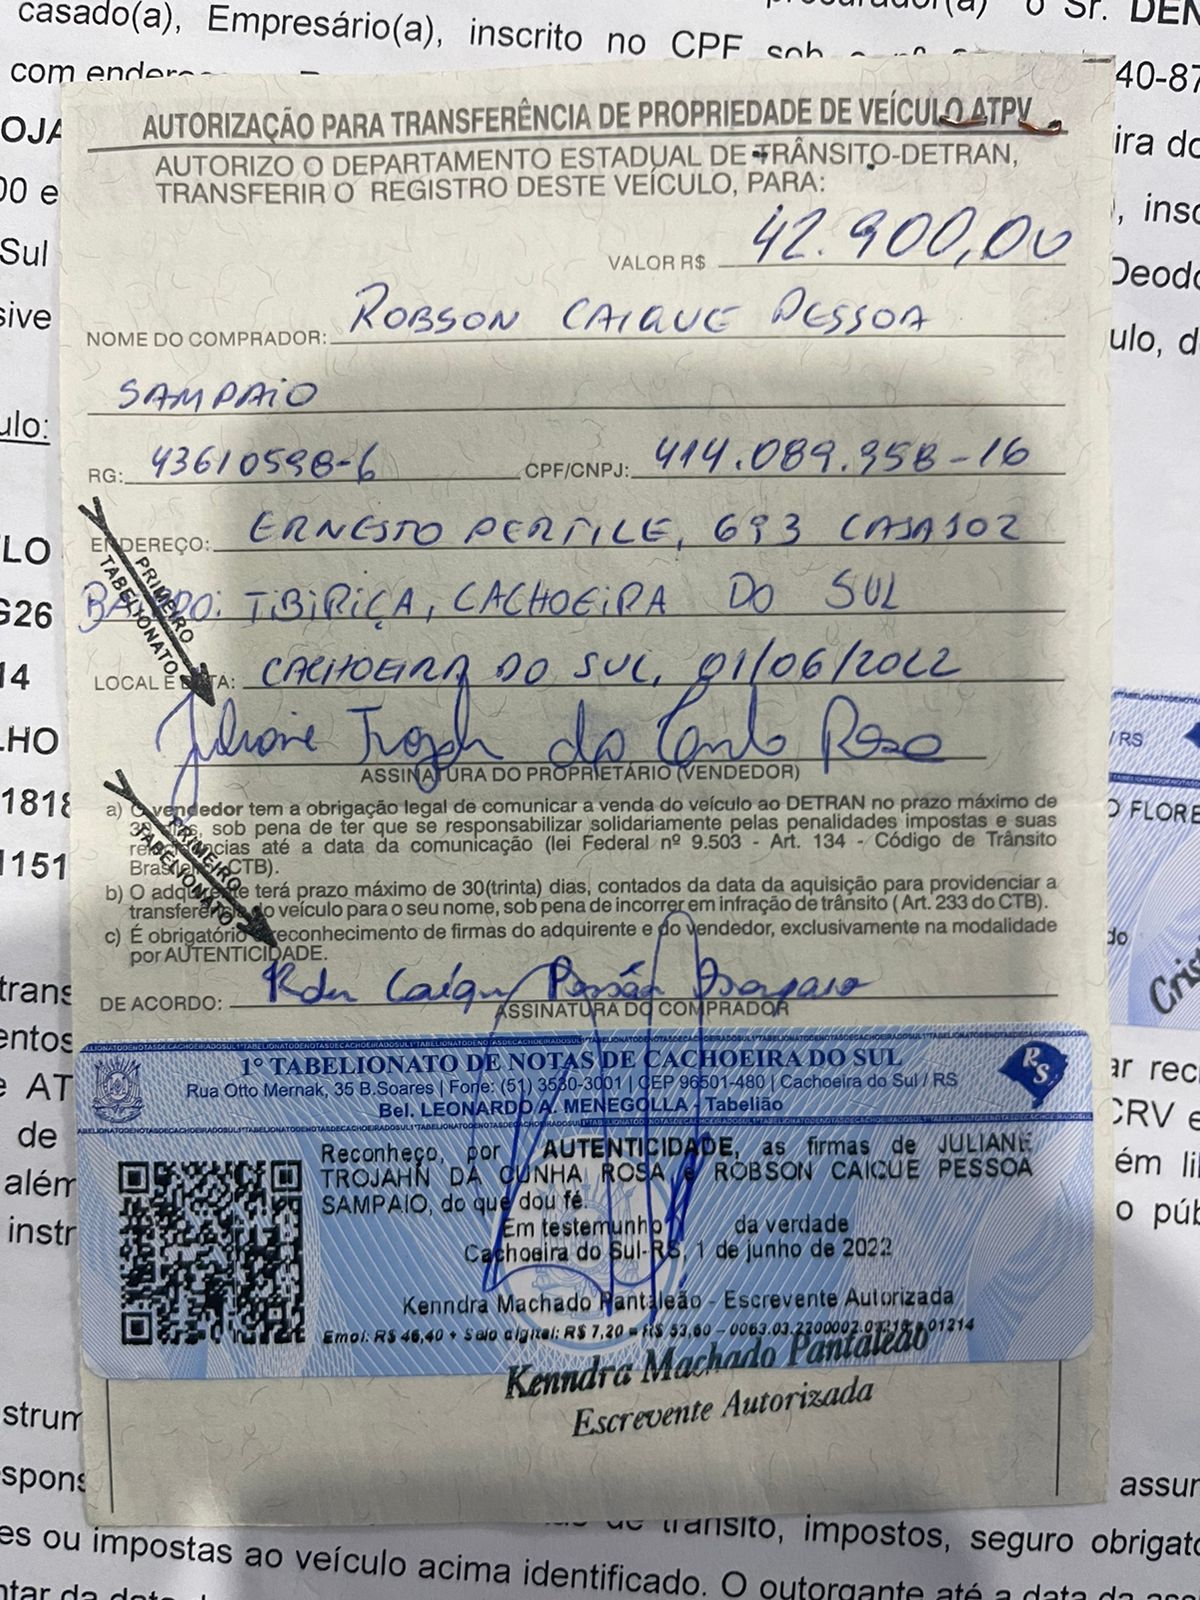 casado(a), Empresário(a), inscrito no CPF sob o nº
procurador(a) o Sr. DEN
com endere
40-87
OJA
ira do
00 e
, insc
Sul
Deodo
sive
ulo, d
ulo:
AUTORIZAÇÃO PARA TRANSFERÊNCIA DE PROPRIEDADE DE VEÍCULO ATPV
AUTORIZO O DEPARTAMENTO ESTADUAL DE TRÂNSITO-DETRAN,
TRANSFERIR O REGISTRO DESTE VEÍCULO, PARA:
VALOR R$ 42.900,00
NOME DO COMPRADOR: ROBSON CAIQUE PESSOA
SAMPAIO
RG: 43610598-6 CPF/CNPJ: 414.089.958-16
ENDEREÇO: ERNESTO PERTILE, 693 CASA102
BAIRRO: TIBIRIÇA, CACHOEIRA DO SUL
LOCAL E DATA: CACHOEIRA DO SUL, 01/06/2022
PRIMEIRO
TABELIONATO
Juliane Trojahn da Cunha Rosa
ASSINATURA DO PROPRIETÁRIO (VENDEDOR)
a) O vendedor tem a obrigação legal de comunicar a venda do veículo ao DETRAN no prazo máximo de
30 dias, sob pena de ter que se responsabilizar solidariamente pelas penalidades impostas e suas
reincidências até a data da comunicação (lei Federal nº 9.503 - Art. 134 - Código de Trânsito
Brasileiro-CTB).
b) O adquirente terá prazo máximo de 30(trinta) dias, contados da data da aquisição para providenciar a
transferência do veículo para o seu nome, sob pena de incorrer em infração de trânsito (Art. 233 do CTB).
c) É obrigatório o reconhecimento de firmas do adquirente e do vendedor, exclusivamente na modalidade
por AUTENTICIDADE.
PRIMEIRO
TABELIONATO
DE ACORDO: Caique Pessoa Sampaio
ASSINATURA DO COMPRADOR
1º TABELIONATO DE NOTAS DE CACHOEIRA DO SUL
Rua Otto Mernak, 35 B.Soares | Fone: (51) 3530-3001 | CEP 96501-480 | Cachoeira do Sul / RS
Bel. LEONARDO A. MENEGOLLA - Tabelião
RS
Reconheço, por AUTENTICIDADE, as firmas de JULIANE
TROJAHN DA CUNHA ROSA e ROBSON CAIQUE PESSOA
SAMPAIO, do que dou fé.
Em testemunho da verdade
Cachoeira do Sul-RS, 1 de junho de 2022
Kenndra Machado Pantaleão - Escrevente Autorizada
Emol: R$ 46,40 + Selo digital: R$ 7,20 = R$ 53,60 - 0063.03.2200002.
01214
Kenndra Machado Pantaleão
Escrevente Autorizada
LO
G26
14
LHO
1818
1151
/ RS
O FLORE
do
Crist
trans
entos
e AT
de
além
instr
ar rec
CRV e
ém li
o púb
strum
spons
assum
de trânsito, impostos, seguro obrigató
es ou impostas ao veículo acima identificado. O outorgante até a data da
ntar da data